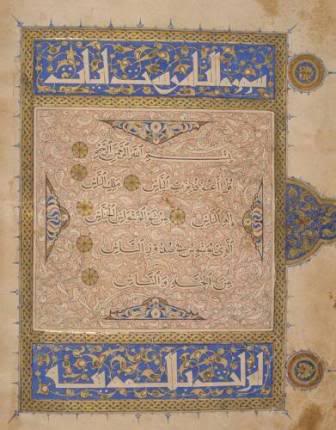 سورة الناس ست آيات
بسم الله الرحمن الرحيم
قل أعوذ برب الناس ملك الناس
إله الناس من شر الوسواس الخناس
الذي يوسوس في صدور الناس
من الجنة والناس